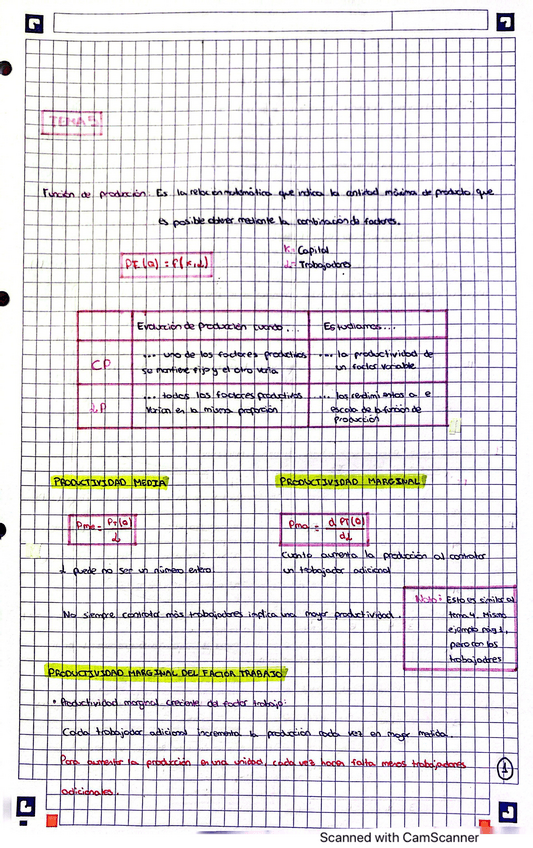 TEMA 5
Función de producción: Es la relación matemática que indica la cantidad máxima de producto que
es posible obtener mediante la combinación de factores.
PT(Q) = f(K,L)
K: Capital
L: Trabajadores
Evolución de Producción cuando... Estudiamos...
CP
... uno de los factores productivos
se mantiene fijo y el otro varía
... la productividad de
un factor variable
LP
... todos los factores productivos
varían en la misma proporción
... los rendimientos a e
escala de la función de
Producción
PRODUCTIVIDAD MEDIA
PRODUCTIVIDAD MARGINAL
Pme = PT(Q) / L
Pma = d PT(Q) / dL
Cuánto aumenta la producción al contratar
un trabajador adicional
L puede no ser un número entero.
No siempre contratar más trabajadores implica una mayor productividad.
Nota: Esto es similar al
tema 4. Mismo
ejemplo pág 1,
pero con los
trabajadores
PRODUCTIVIDAD MARGINAL DEL FACTOR TRABAJO
• Productividad marginal creciente del factor trabajo:
Cada trabajador adicional incrementa la producción cada vez en mayor medida.
Para aumentar la producción en una unidad, cada vez hacen falta menos trabajadores
adicionales.
1
Scanned with CamScanner